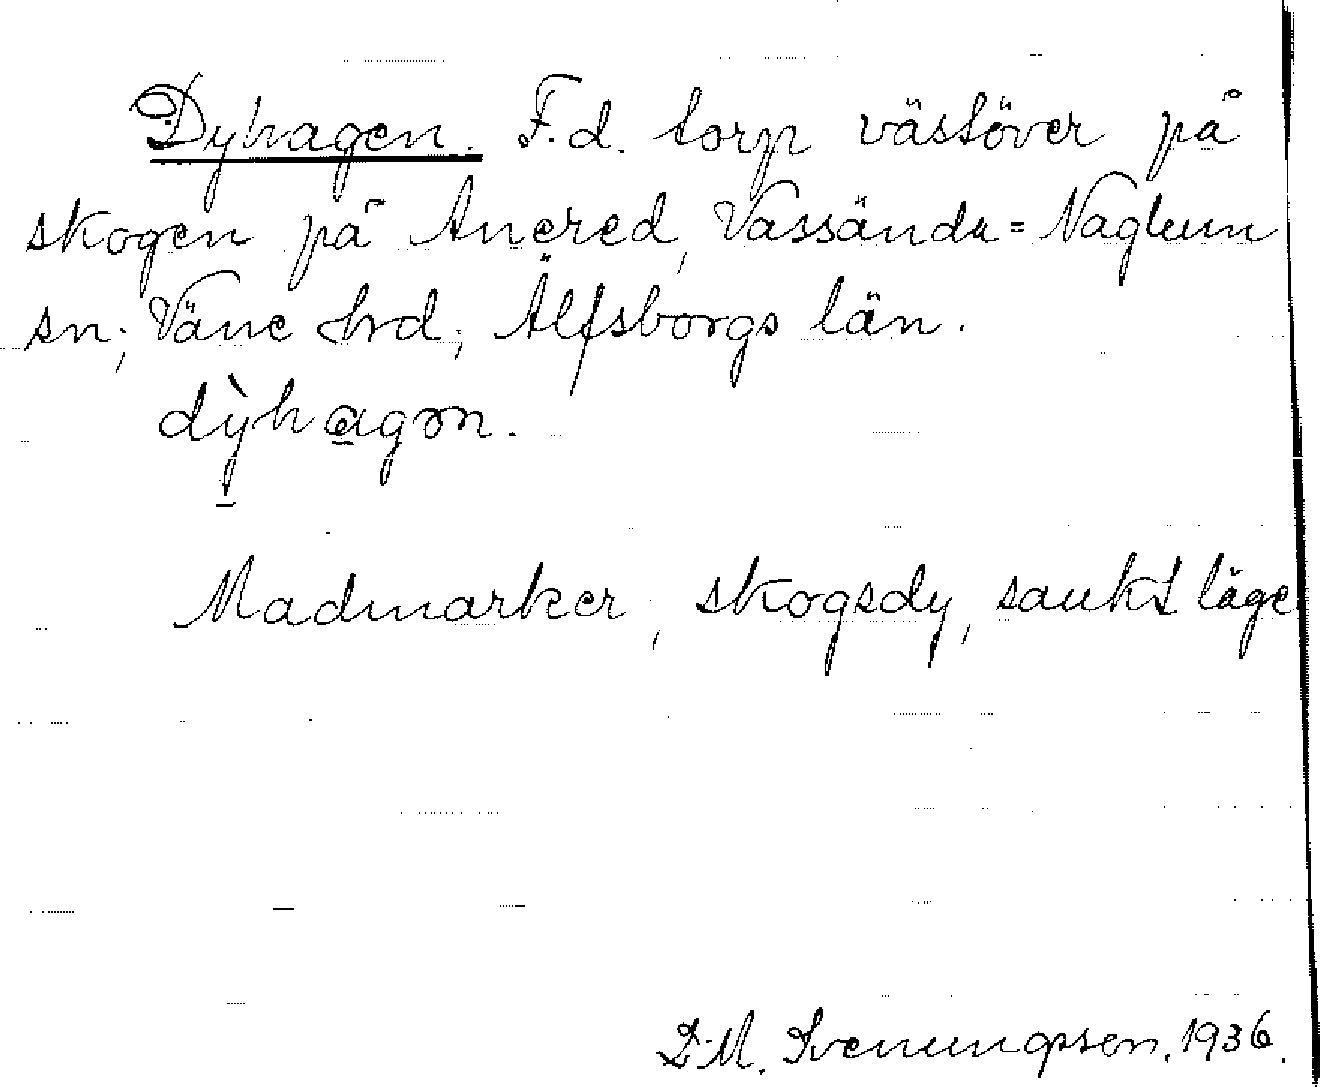 Dyhagen. F.d. torp västöver på
skogen på Anered, Vassända=Naglum
sn; Väne hrd; Älfsborgs län.
dỳhagən.
Madmarker, skogsdy, sankt läge
D.M. Svenungsson. 1936.